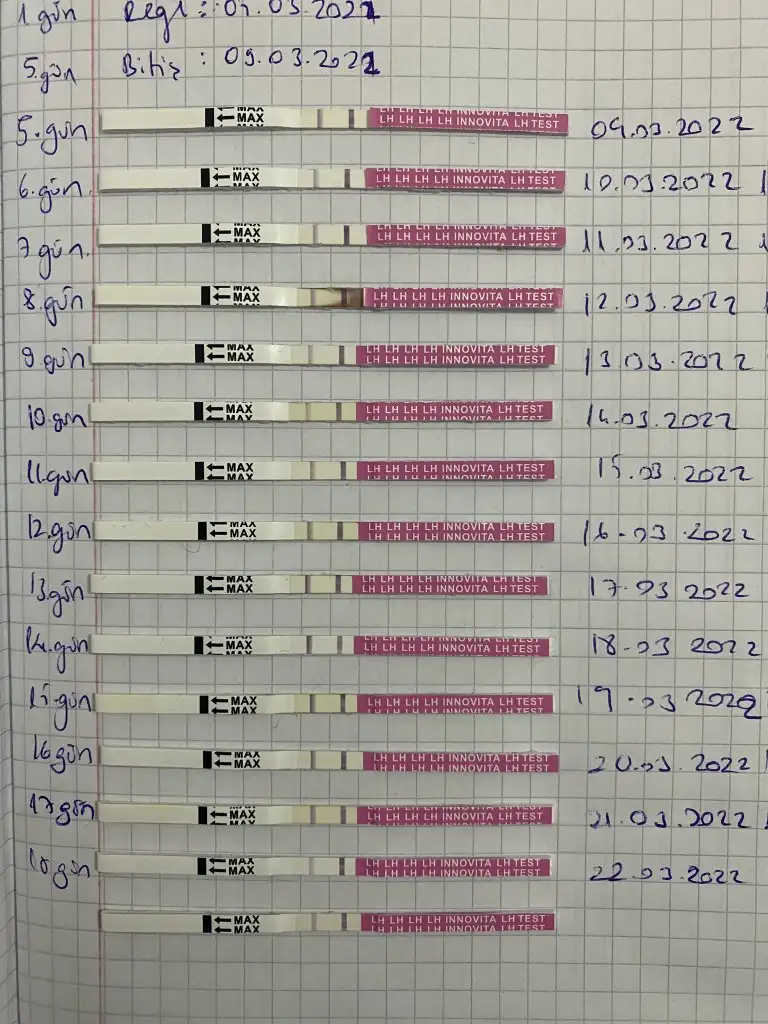 1 gün Regl : 0?.03.2022
5.gün Bitiş : 09.03.2022
5.gün MAX MAX LH LH LH LH INNOVITA LH TEST 09.03.2022
6.gün. MAX LH LH LH LH INNOVITA LH TEST 10.03.2022
7 gün. MAX MAX LH LH LH LH INNOVITA LH TEST 11.03.2022
8.gün MAX MAX LH LH LH LH INNOVITA LH TEST 12.03.2022
9.gün MAX MAX LH LH LH LH INNOVITA LH TEST 13.03.2022
10.gün MAX MAX LH LH LH LH INNOVITA LH TEST 14.03.2022
11.gün MAX MAX LH LH LH LH INNOVITA LH TEST 15.03.2022
12.gün MAX MAX LH LH LH LH INNOVITA LH TEST 16-03.2022
13.gün MAX MAX LH LH LH LH INNOVITA LH TEST 17.03 2022
14.gün MAX MAX LH LH LH LH INNOVITA LH TEST 18-03 2022
15.gün MAX MAX LH LH LH LH INNOVITA LH TEST 19.03 2022
16 gün MAX MAX LH LH LH LH INNOVITA LH TEST 20.03.2022
17 gün MAX MAX LH LH LH LH INNOVITA LH TEST 21.03.2022
MAX MAX LH LH LH LH INNOVITA LH TEST 22.03.2022
MAX MAX LH LH LH LH INNOVITA LH TEST